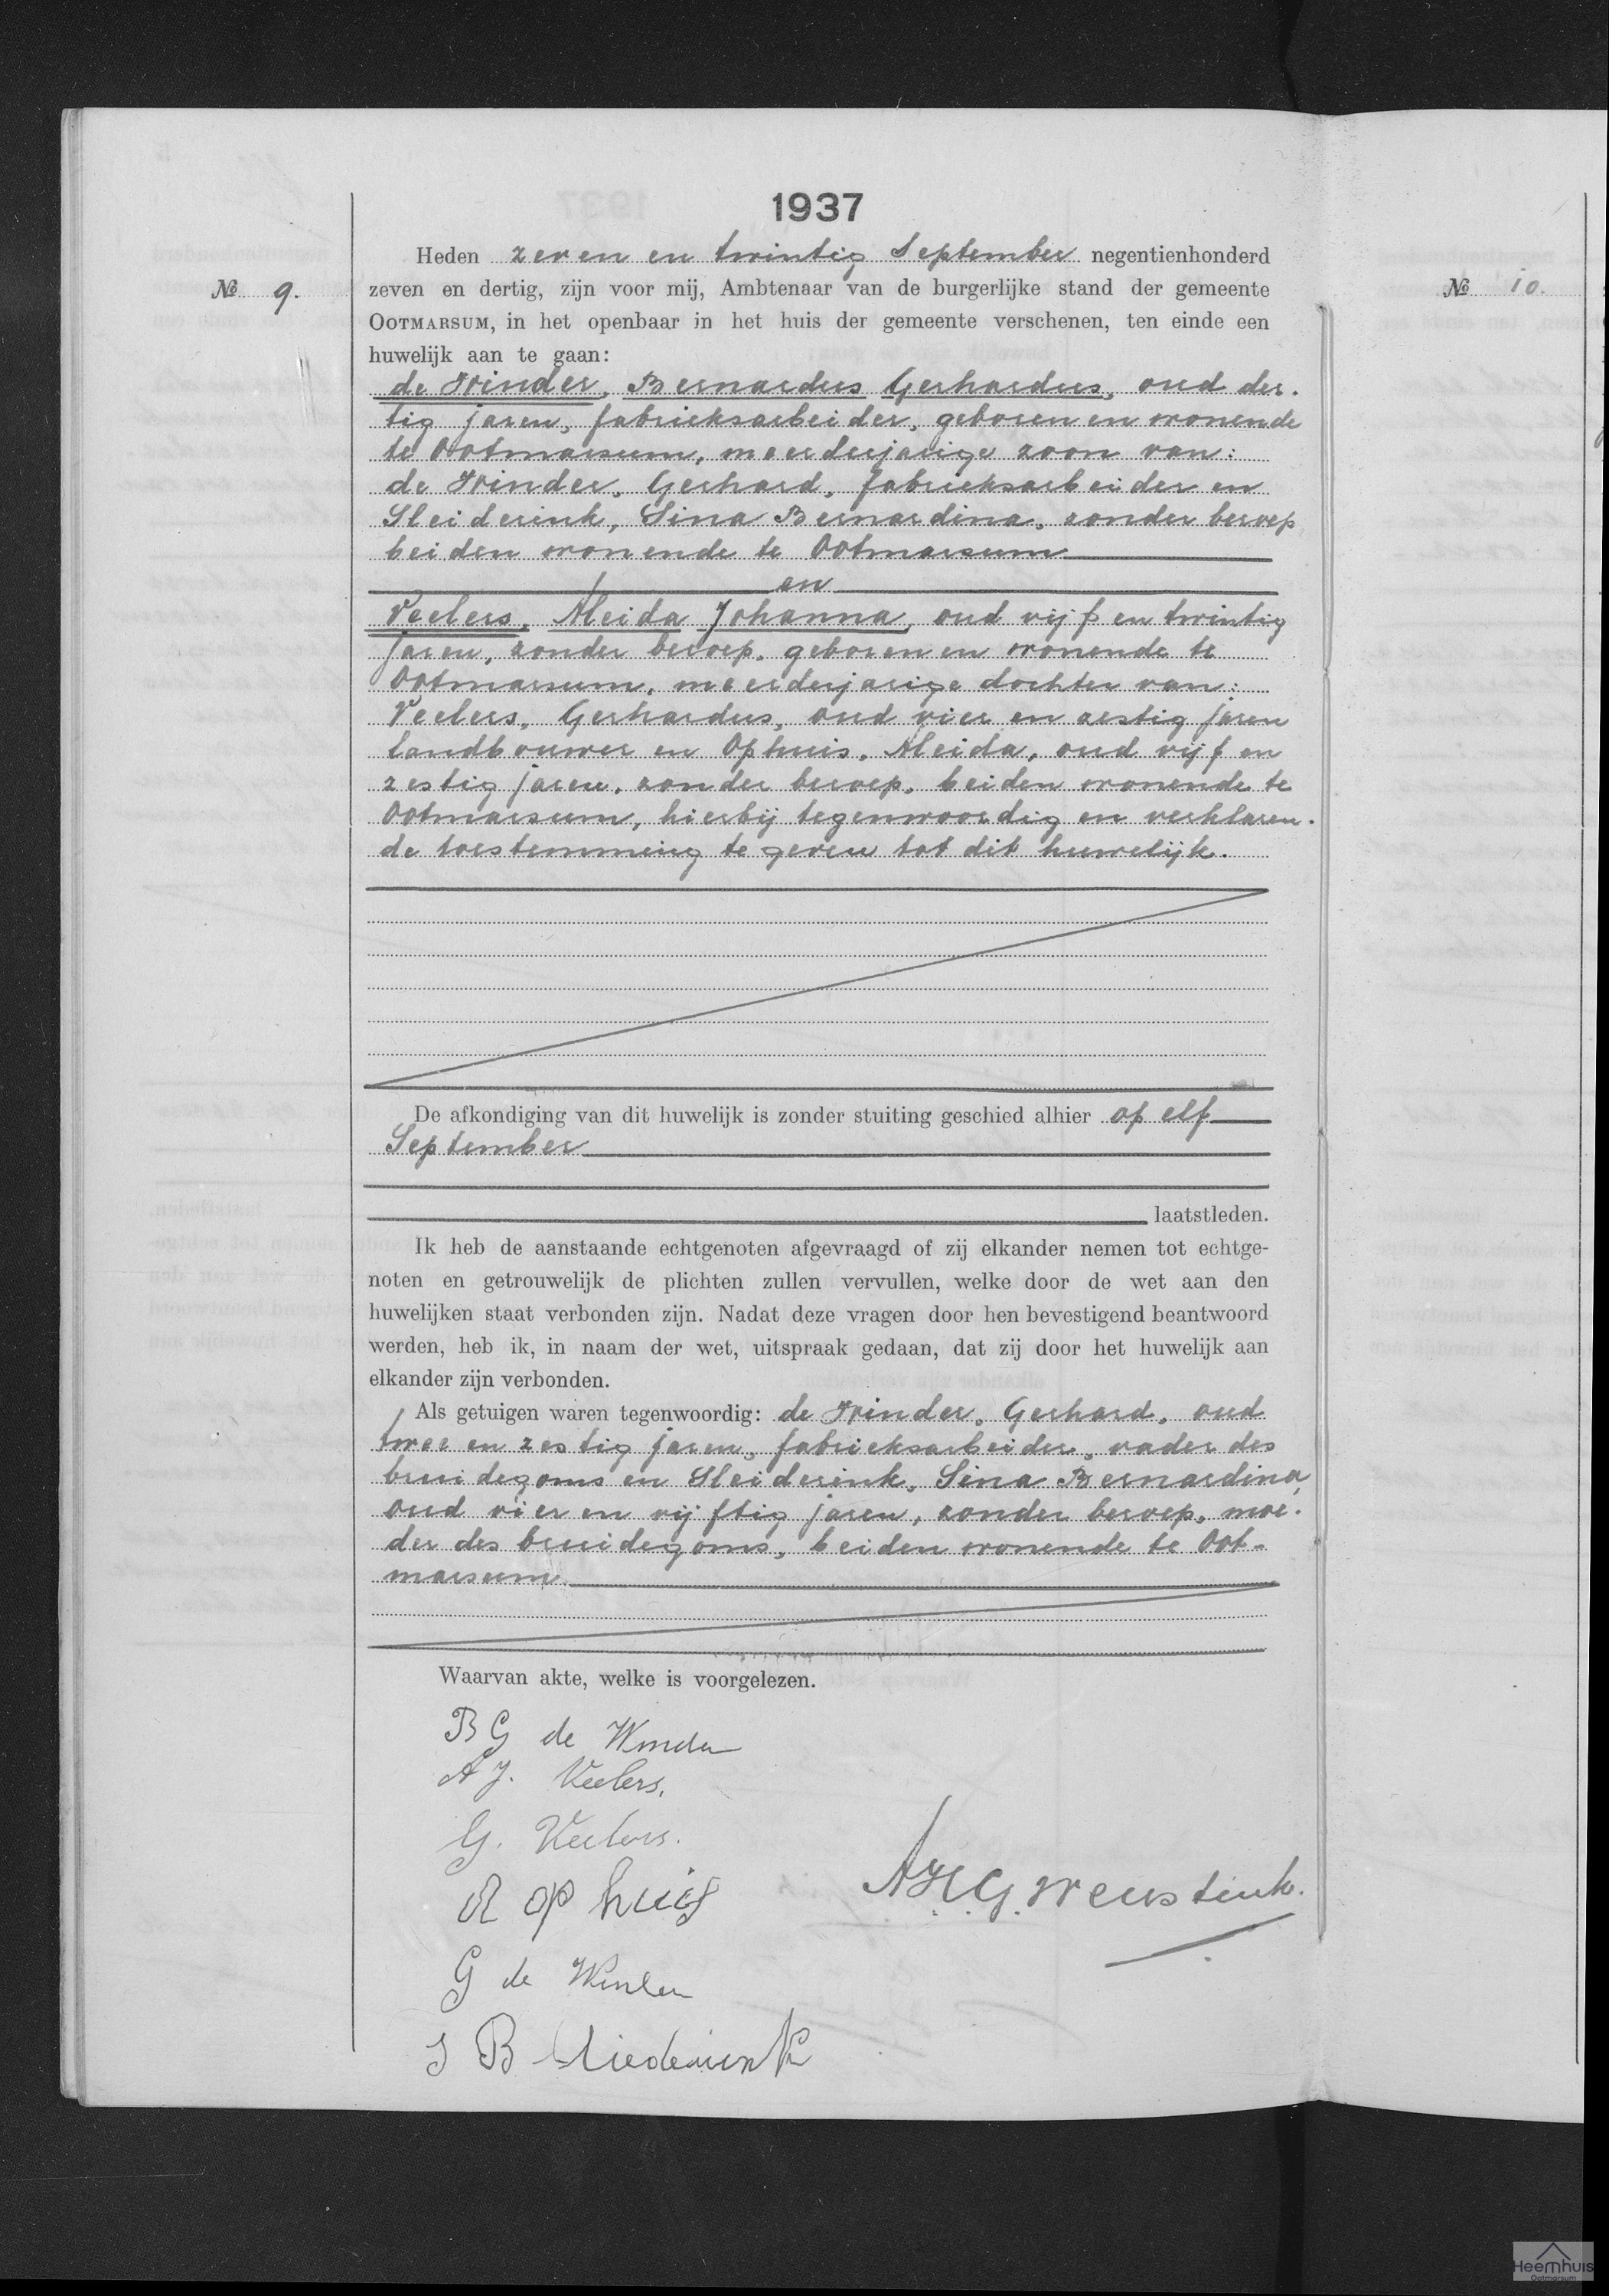 1937
Heden zeven en twintig September negentienhonderd
№ 9.
zeven en dertig, zijn voor mij, Ambtenaar van de burgerlijke stand der gemeente
№ 10.
OOTMARSUM, in het openbaar in het huis der gemeente verschenen, ten einde een
huwelijk aan te gaan:
de Winder, Bernardus Gerhardus, oud der-
tig jaren, fabrieksarbeider, geboren en wonende
te Ootmarsum, meerderjarige zoon van:
de Winder, Gerhard, fabrieksarbeider en
Sleiderink, Sina Bernardina, zonder beroep
beiden wonende te Ootmarsum
en
Veelers, Aleida Johanna, oud vijf en twintig
jaren, zonder beroep, geboren en wonende te
Ootmarsum, meerderjarige dochter van:
Veelers, Gerhardus, oud vier en zestig jaren
landbouwer en Ophuis, Aleida, oud vijf en
zestig jaren, zonder beroep, beiden wonende te
Ootmarsum, hierbij tegenwoordig en verklaren-
de toestemming te geven tot dit huwelijk.
De afkondiging van dit huwelijk is zonder stuiting geschied alhier op elf
September
laatstleden.
Ik heb de aanstaande echtgenoten afgevraagd of zij elkander nemen tot echtge-
noten en getrouwelijk de plichten zullen vervullen, welke door de wet aan den
huwelijken staat verbonden zijn. Nadat deze vragen door hen bevestigend beantwoord
werden, heb ik, in naam der wet, uitspraak gedaan, dat zij door het huwelijk aan
elkander zijn verbonden.
Als getuigen waren tegenwoordig: de Winder, Gerhard, oud
twee en zestig jaren, fabrieksarbeider, vader des
bruidegoms en Sleiderink, Sina Bernardina,
oud vier en vijftig jaren, zonder beroep, moe-
der des bruidegoms, beiden wonende te Oot-
marsum.
Waarvan akte, welke is voorgelezen.
B G de Winder
A J. Veelers.
G. Veelers.
A op huis
A H G Weustink.
G de Winder
S B
Heemhuis
Ootmarsum